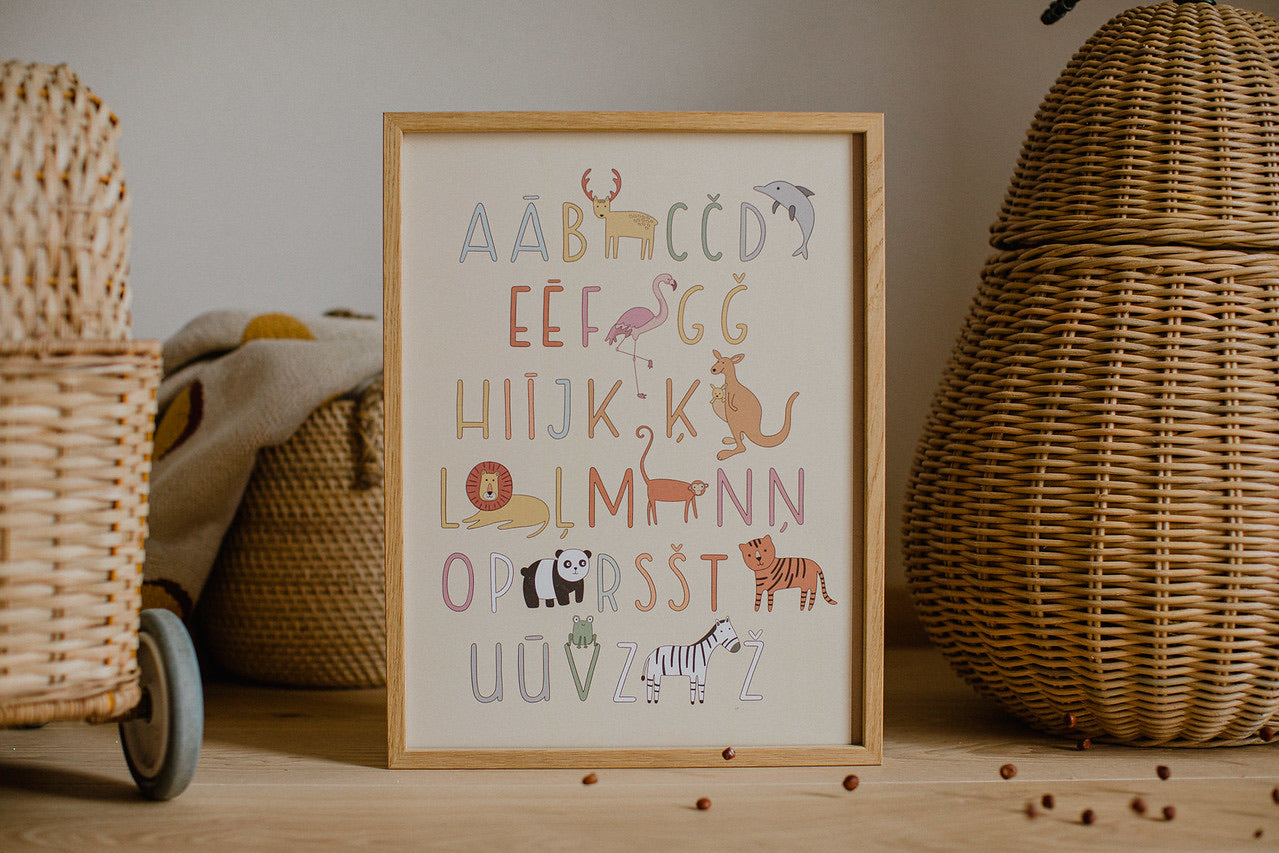 A Ā B C Č D
E Ē F G Ğ
H I Ī J K Ķ
L Ļ M N Ņ
O P R S Š T
U Ū V Z Ž